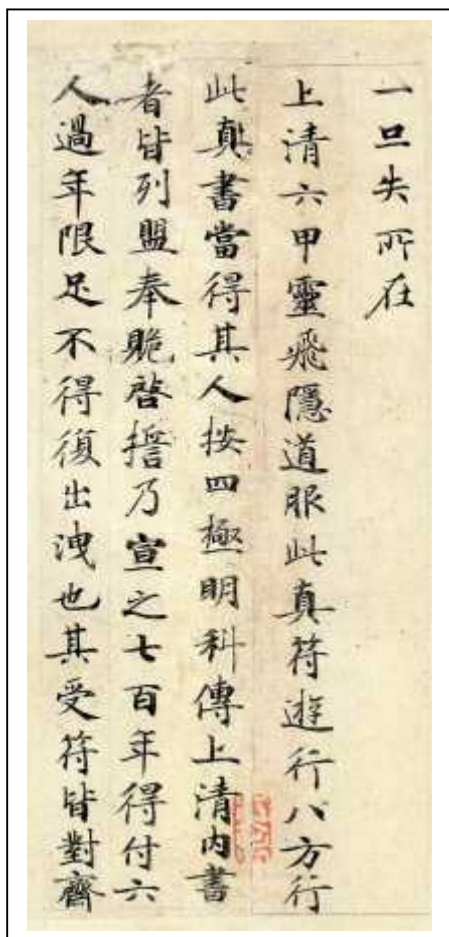 一旦失所在
上清六甲靈飛隱道服此真符遊行八方行
此真書當得其人按四極明科傳上清內書
者皆列盟奉贍啓誓乃宣之七百年得付六
人過年限足不得復出洩也其受符皆對齋